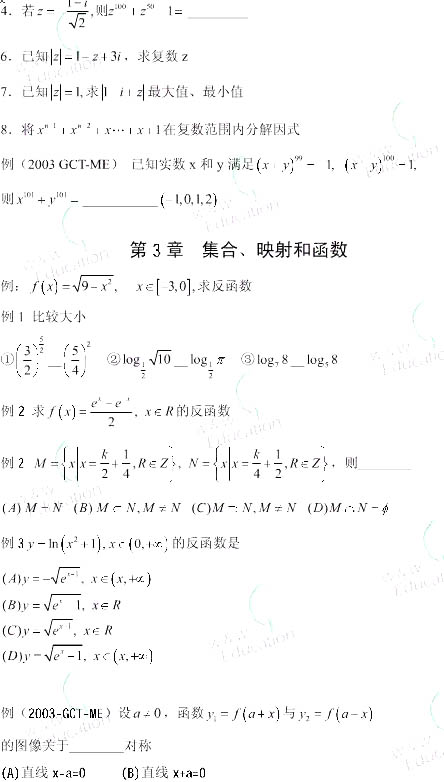 4. 若 z = -\frac{1-i}{\sqrt{2}}, 则z^{100} + z^{50} 1 = ________
6. 已知|z| = 1 - z + 3i, 求复数 z
7. 已知|z| = 1, 求 |1 i + z| 最大值、最小值
8. 将 x^{n-1} + x^{n-2} + x⋯ + x + 1 在复数范围内分解因式
例(2003 GCT-ME) 已知实数 x 和 y 满足 (x y)^{99} = - 1, (x y)^{100} = 1,
则 x^{101} + y^{101} = ________ (-1,0,1,2)
第 3 章 集合、映射和函数
例: f(x) = \sqrt{9 - x^2}, x ∈ [-3,0], 求反函数
例 1 比较大小
①(\frac{3}{2})^{\frac{5}{2}} __ (\frac{5}{4})^2 ②log_{\frac{1}{2}} \sqrt{10} __ log_{\frac{1}{2}} π ③log_7 8 __ log_5 8
例 2 求 f(x) = \frac{e^x - e^{-x}}{2}, x ∈ R 的反函数
例 2 M = {x | x = \frac{k}{2} + \frac{1}{4}, R ∈ Z}, N = {x | x = \frac{k}{4} + \frac{1}{2}, R ∈ Z}, 则________
(A) M = N (B) M ⊂ N, M ≠ N (C) M ⊃ N, M ≠ N (D) M ∩ N = ϕ
例 3 y = ln(x^2 + 1), x ∈ (0, +∞) 的反函数是
(A) y = -\sqrt{e^{x-1}}, x ∈ (x, +∞)
(B) y = \sqrt{e^x 1}, x ∈ R
(C) y = \sqrt{e^{x-1}}, x ∈ R
(D) y = \sqrt{e^x - 1}, x ∈ (x, +∞)
例(2003-GCT-ME)设 a ≠ 0, 函数 y_1 = f(a + x) 与 y_2 = f(a - x)
的图像关于________对称
(A)直线 x-a=0 (B)直线 x+a=0